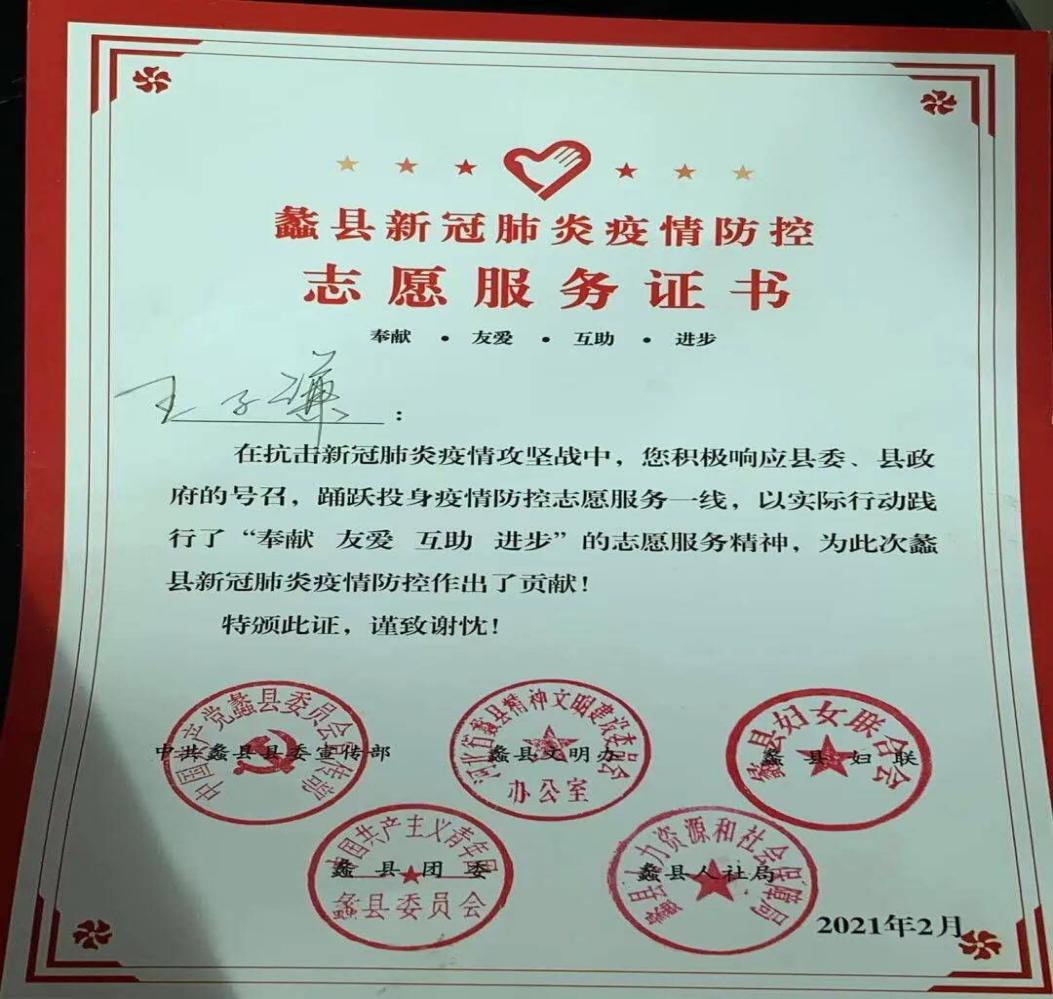 蠡县新冠肺炎疫情防控
志愿服务证书
奉献 • 友爱 • 互助 • 进步
王子濂:
在抗击新冠肺炎疫情攻坚战中，您积极响应县委、县政
府的号召，踊跃投身疫情防控志愿服务一线，以实际行动践
行了“奉献 友爱 互助 进步”的志愿服务精神，为此次蠡
县新冠肺炎疫情防控作出了贡献！
特颁此证，谨致谢忱！
中国共产党蠡县委员会宣传部
中共蠡县县委宣传部
河北省蠡县精神文明建设委员会
办公室
蠡县文明办
蠡县妇女联合会
蠡县妇联
中国共产主义青年团
蠡县委员会
蠡县团委
蠡县人力资源和社会保障局
蠡县人社局
2021年2月